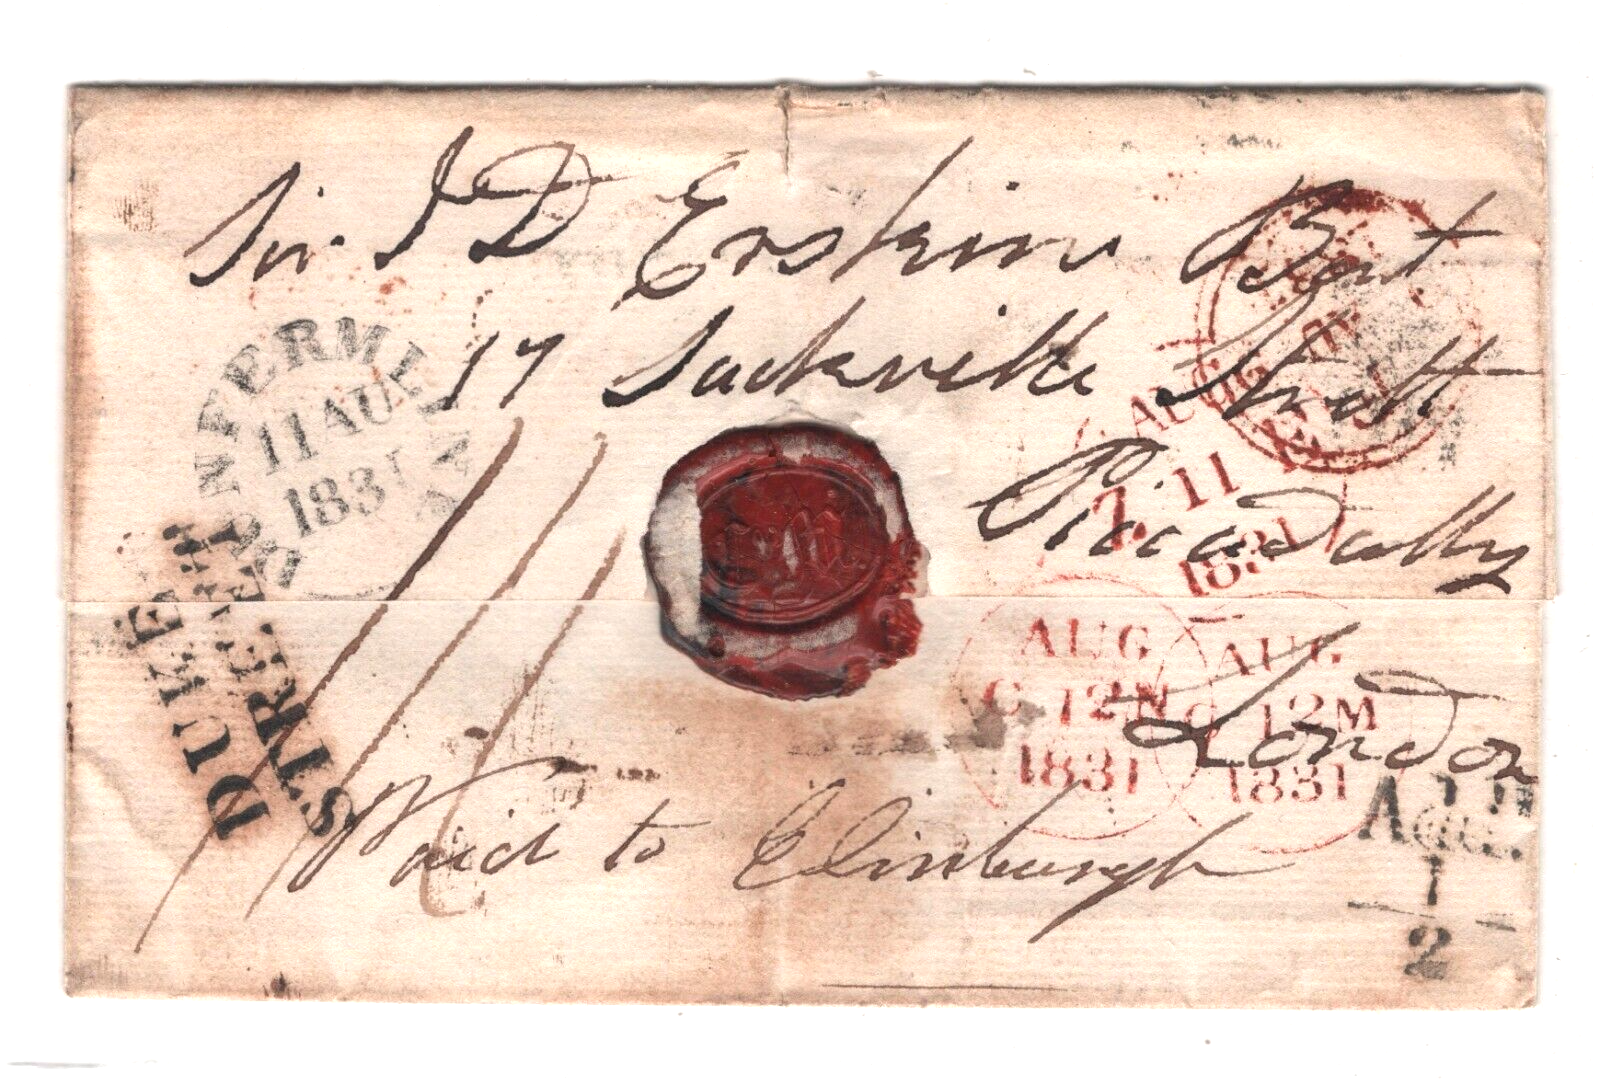 Sir J D Erskine Bart
17 Sackville Street
Piccadilly
London
Paid to Edinburgh
DUNFERMLINE
11 AUG
1831
DUKE
STREET
AUG
Z · 11
1831
AUG
C 12 N
1831
AUG
C 12 M
1831
Addl.
1
2